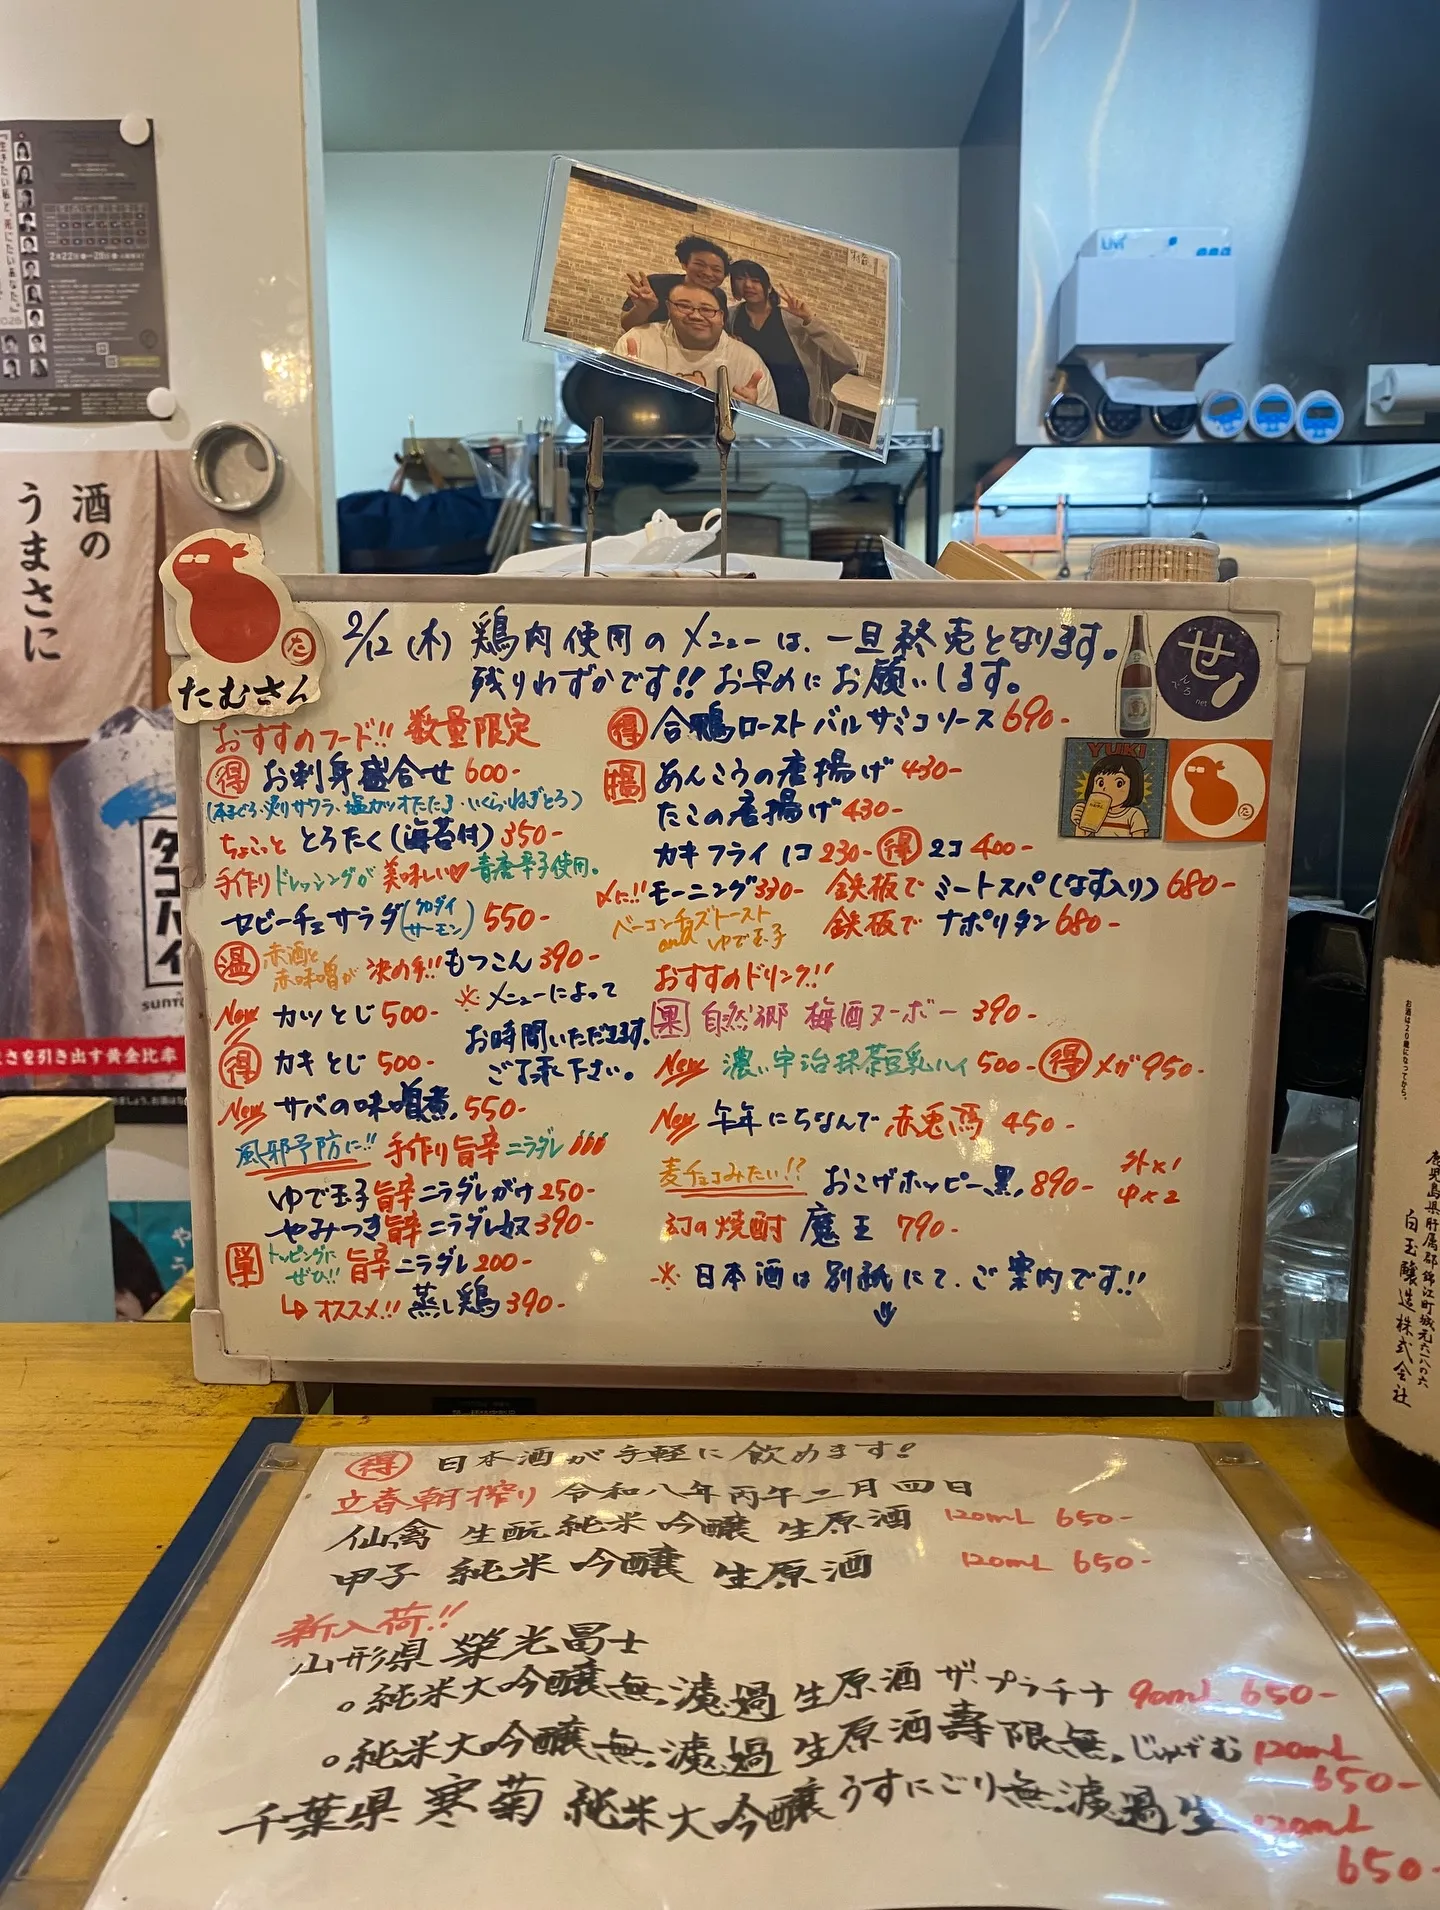 2/12(木) 鶏肉使用のメニューは、一旦終売となります。
残りわずかです!! お早めにお願いします。
おすすめのフード!! 数量限定
得 お刺身盛合せ 600-
(本まぐろ・炙りサワラ・塩カツオたたき・いくら・ねぎとろ)
ちょこっと とろたく(海苔付) 350-
手作りドレッシングが美味しい♡ 青唐辛子使用。
セビーチェサラダ(クロダイ サーモン) 550-
温 赤酒と赤味噌が決め手!! もつこん 390-
New カツとじ 500-
※メニューによって
お時間いただきます。
ご了承下さい。
得 カキとじ 500-
New サバの味噌煮 550-
風邪予防に!! 手作り旨辛ニラダレ
ゆで玉子旨辛ニラダレがけ 250-
やみつき旨辛ニラダレ奴 390-
単 トッピングにぜひ!! 旨辛ニラダレ 200-
オススメ!! 蒸し鶏 390-
得 合鴨ロースト バルサミコソース 690-
揚 あんこうの唐揚げ 430-
たこの唐揚げ 430-
カキフライ 1コ 230- 得 2コ 400-
〆に!! モーニング 330-
ベーコンチーズトースト
and ゆで玉子
鉄板で ミートスパ(なす入り) 680-
鉄板で ナポリタン 680-
おすすめのドリンク!!
果 自然郷 梅酒ヌーボー 390-
New 濃い宇治抹茶豆乳ハイ 500- 得 メガ 950-
New 午年にちなんで 赤兎馬 450-
麦チョコみたい!? おこげホッピー黒 890- 外×1 中×2
幻の焼酎 魔王 790-
※日本酒は別紙にて、ご案内です!!
たむさん
た
せ
んべろ
net
YUKI
た
得 日本酒が手軽に飲めます!
立春朝搾り 令和八年丙午二月四日
仙禽 生酛純米吟醸 生原酒 120mL 650-
甲子 純米吟醸 生原酒 120mL 650-
新入荷!!
山形県 榮光冨士
○純米大吟醸無濾過生原酒 ザ・プラチナ 90mL 650-
○純米大吟醸無濾過生原酒 壽限無 じゅげむ 120mL 650-
千葉県 寒菊 純米大吟醸うすにごり無濾過生 120mL 650-
酒の
うまさに
タコハイ
SUNTO
さを引き出す黄金比率
生きたい私と、死にたいあなた。
2月22日 28日
お酒は20歳になってから。
鹿児島県肝属郡錦江町城元六一八の六
白玉醸造株式会社